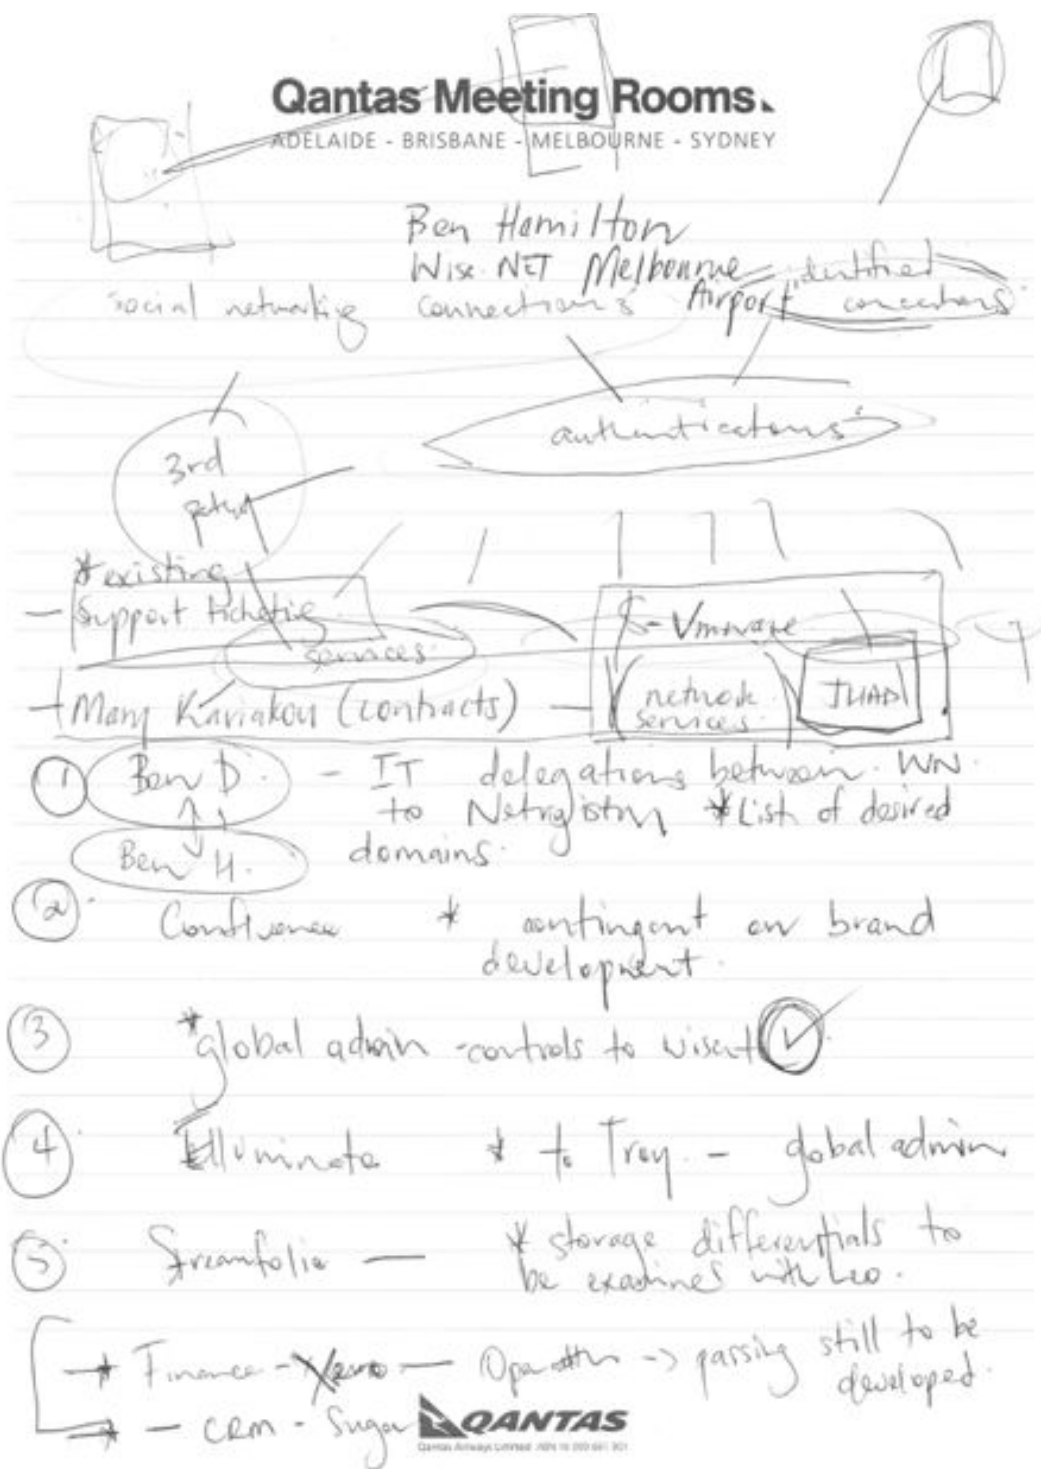 Qantas Meeting Rooms.
ADELAIDE - BRISBANE - MELBOURNE - SYDNEY
Ben Hamilton
Wise.NET Melbourne Airport
identified
social networking connections
authentications
3rd
* existing
- Support ticketing
services
- Vmware
(network services)
- Many (contracts) -
① Ben D. - IT delegations between WN.
to * List of desired
Ben H. domains.
② Confluence * contingent on brand
development.
③ * global admin controls to
④ Elluminate * to Troy. - global admin
⑤ Streamfolio - * storage differentials to
be examines with Leo.
* Finance - - -> passing still to be
developed.
* - CRM - Sugar
QANTAS
Qantas Airways Limited